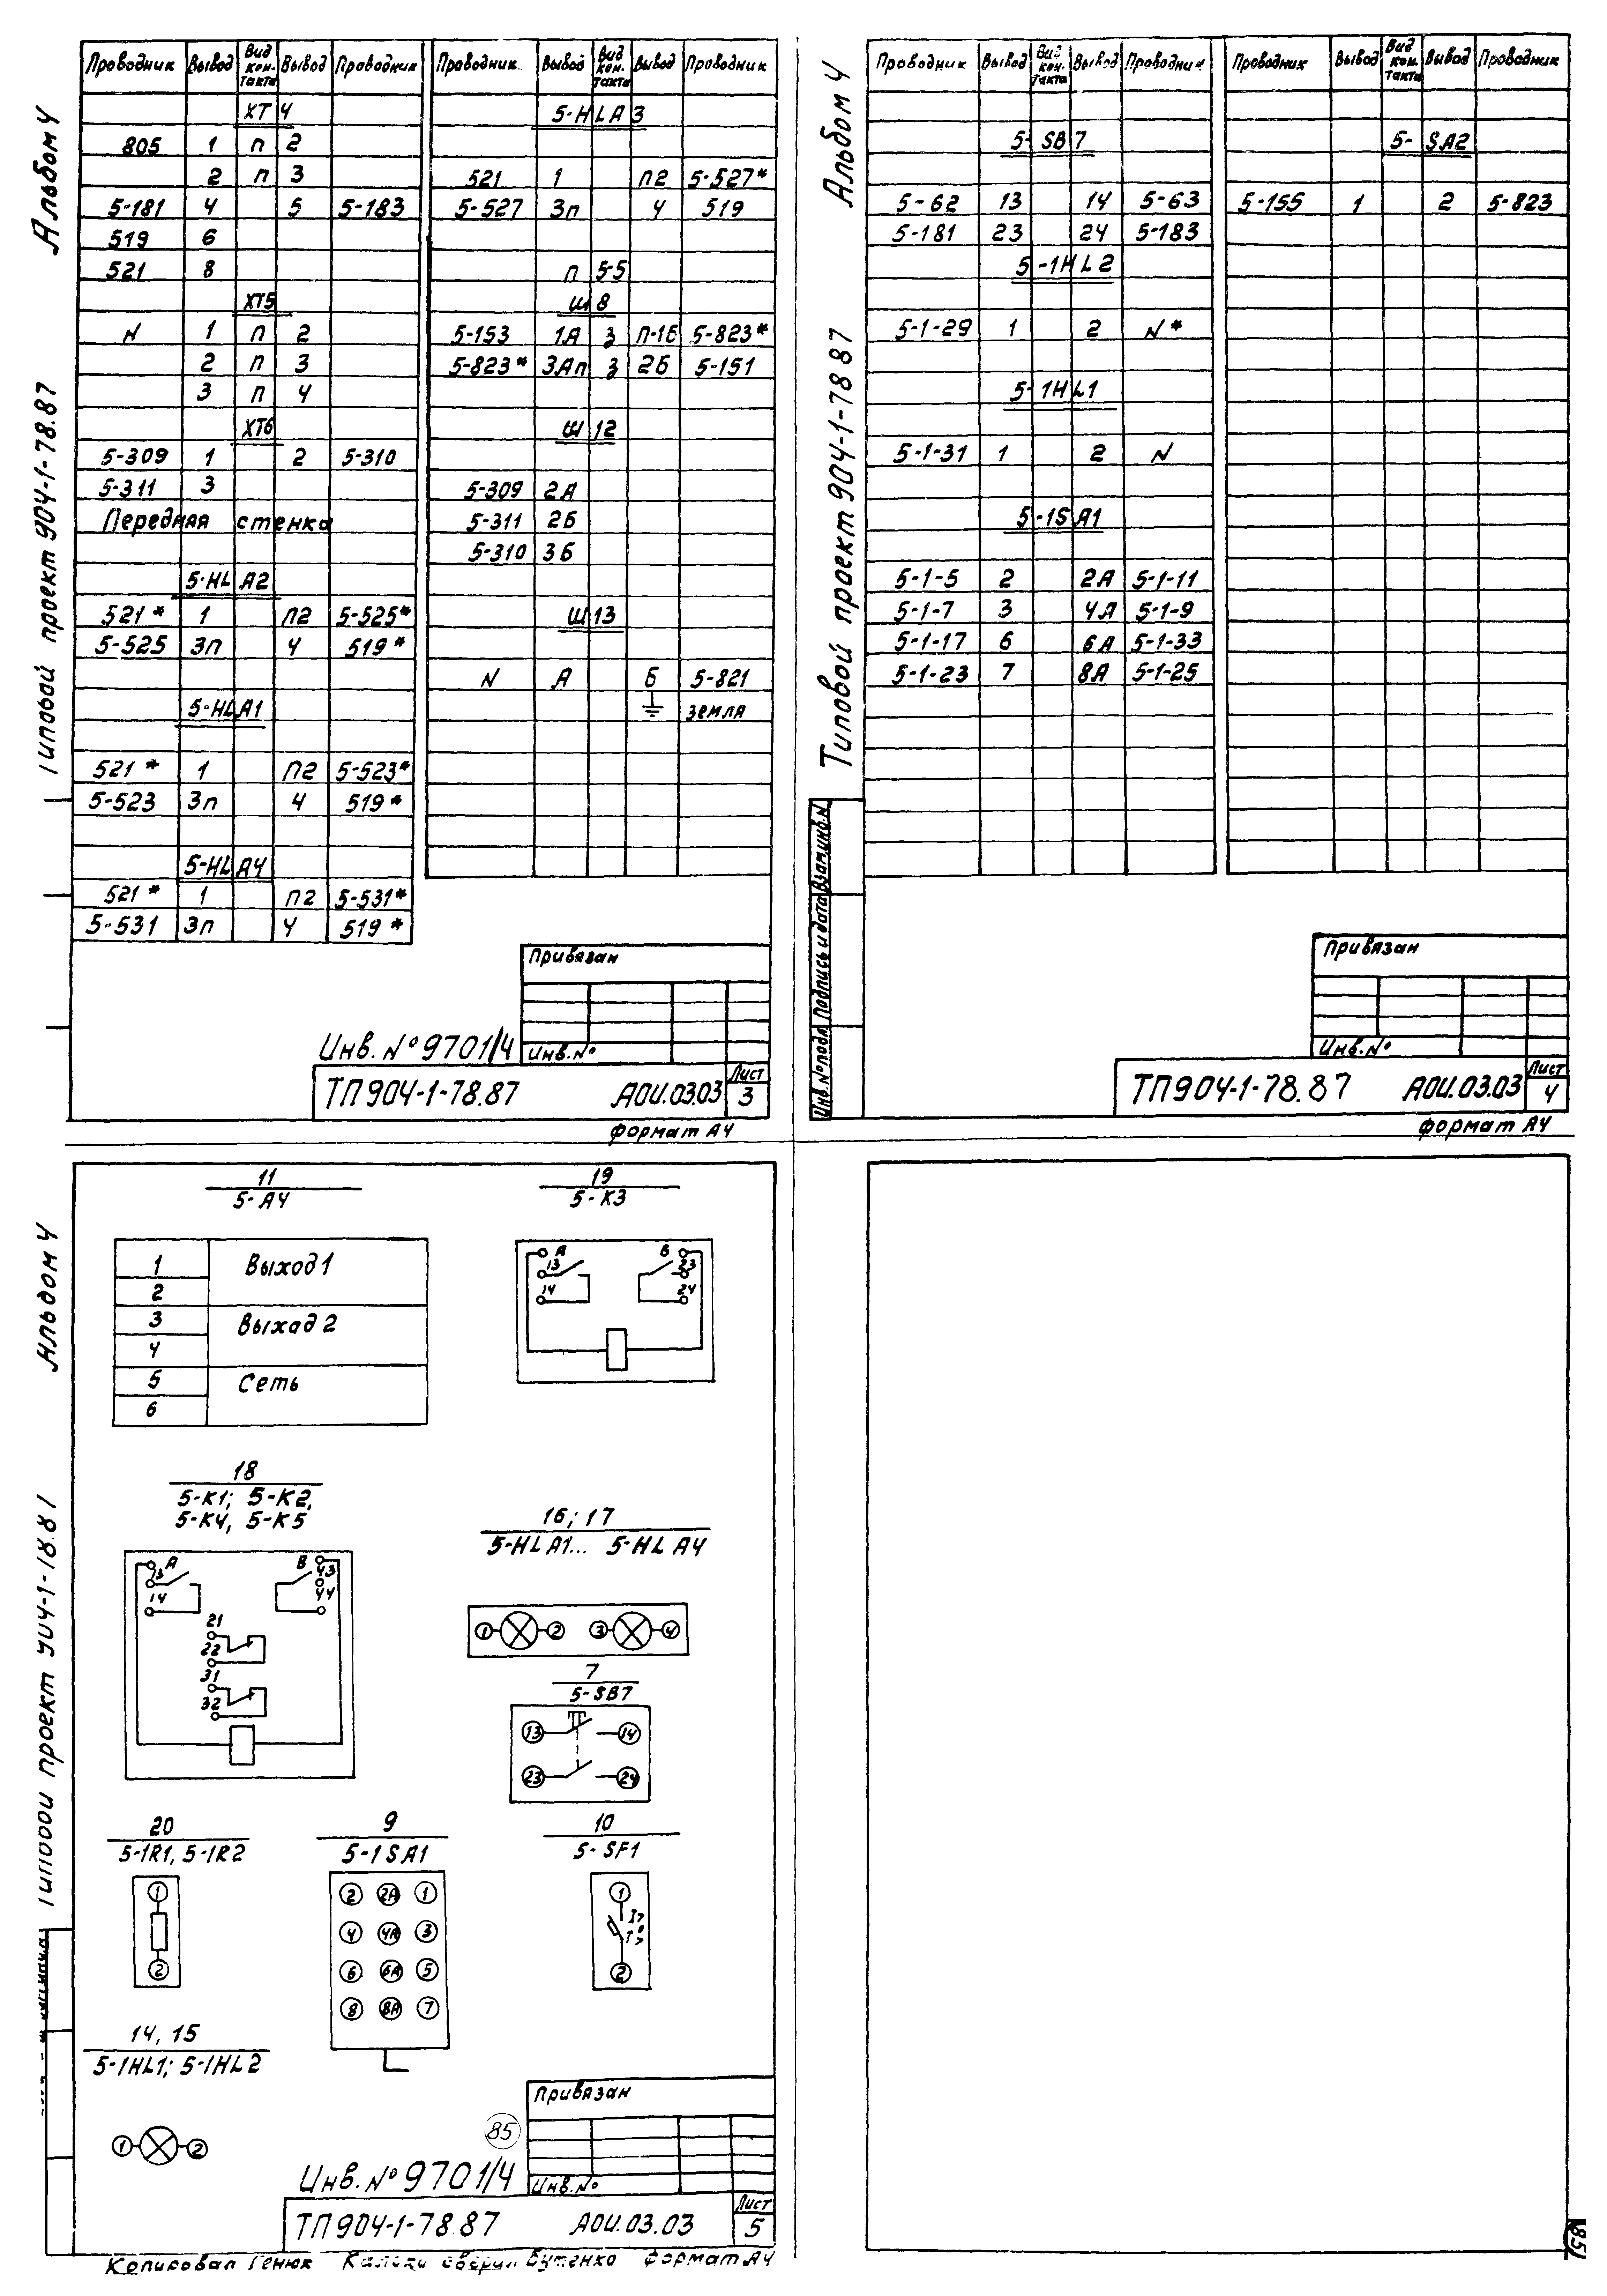 Альбом 4
Типовой проект 904-1-78.87
Проводник Вывод Вид кон-такта Вывод Проводник
XT4
805 1 п 2
2 п 3
5-181 4 5 5-183
519 6
521 8
XT5
N 1 п 2
2 п 3
3 п 4
XT6
5-309 1 2 5-310
5-311 3
Передняя стенка
5-HLA2
521* 1 п2 5-525*
5-525 3п 4 519*
5-HLA1
521* 1 п2 5-523*
5-523 3п 4 519*
5-HLA4
521* 1 п2 5-531*
5-531 3п 4 519*
Проводник Вывод Вид кон-такта Вывод Проводник
5-HLA3
521 1 п2 5-527*
5-527 3п 4 519
п 5-5
Ш8
5-153 1А з п-1Б 5-823*
5-823* 3Ап з 2Б 5-151
Ш12
5-309 2А
5-311 2Б
5-310 3Б
Ш13
N А Б 5-821
земля
Привязан
Инв.№
Инв.№9701/4
ТП904-1-78.87 АОИ.03.03 Лист 3
формат А4
Альбом 4
Типовой проект 904-1-78 87
Проводник Вывод Вид кон-такта Вывод Проводник
5-SB7
5-62 13 14 5-63
5-181 23 24 5-183
5-1HL2
5-1-29 1 2 N*
5-1HL1
5-1-31 1 2 N
5-1SA1
5-1-5 2 2А 5-1-11
5-1-7 3 4А 5-1-9
5-1-17 6 6А 5-1-33
5-1-23 7 8А 5-1-25
Проводник Вывод Вид кон-такта Вывод Проводник
5-SA2
5-155 1 2 5-823
Инв.№подл. Подпись и дата Взам.инв.№
Привязан
Инв.№
ТП904-1-78.87 АОИ.03.03 Лист 4
формат А4
Альбом 4
Типовой проект 904-1-78.87
11
5-А4
1 Выход1
2
3 Выход 2
4
5 Сеть
6
19
5-К3
А В
13 23
14 24
18
5-К1; 5-К2,
5-К4, 5-К5
А В
13 43
14 44
21
22
31
32
16; 17
5-HLA1... 5-HLA4
1 2 3 4
7
5-SB7
13 14
23 24
20
5-1R1, 5-1R2
1
2
9
5-1SA1
2 2А 1
4 4А 3
6 6А 5
8 8А 7
10
5-SF1
1
I>
T°>
2
14, 15
5-1HL1; 5-1HL2
1 2
85
Привязан
Инв.№
Инв.№9701/4
ТП904-1-78.87 АОИ.03.03 Лист 5
Копировал Генюк Кальки сверил Бутенко формат А4
85